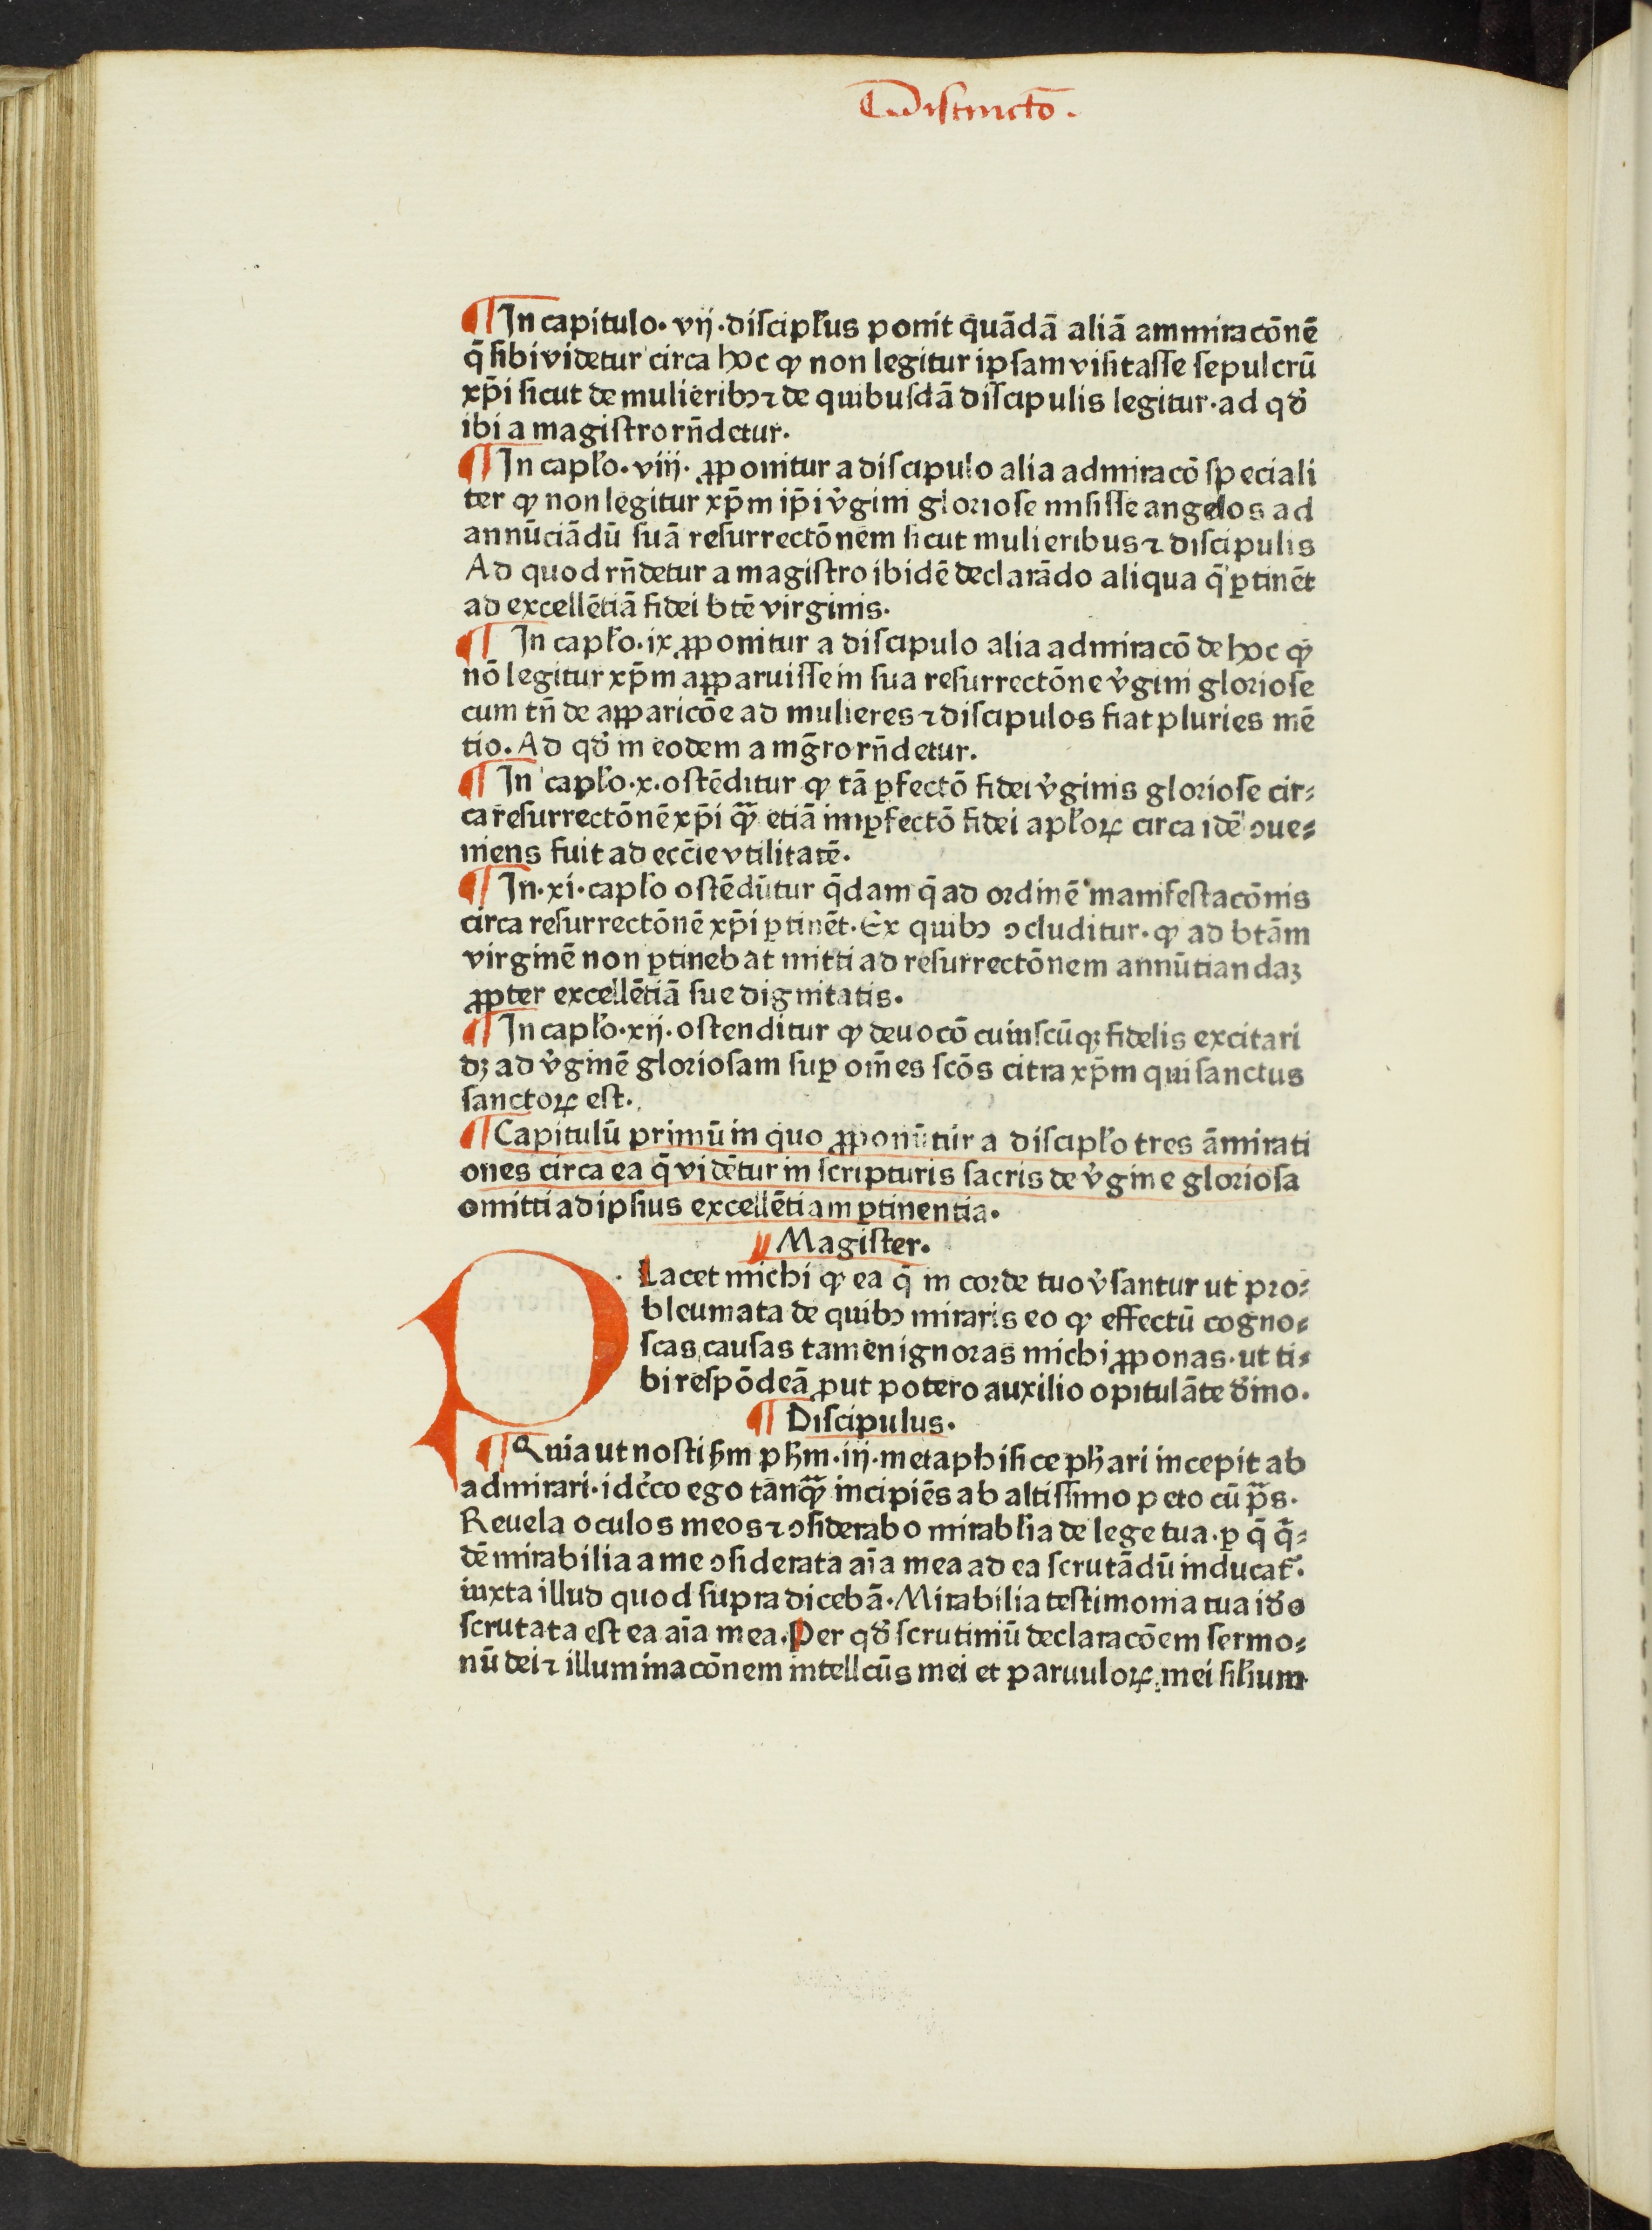 Distinctō.
¶ In capitulo· vij·discipl'us ponit quādā aliā ammiracōnē
q̄ sibi videtur circa hoc ꝙ non legitur ipsam visitasse sepulcrū
xp̄i sicut de mulieribꝰ ⁊ de quibusdā discipulis legitur·ad qd̓
ibi a magistro rn̄detur.
¶ In capl'o· viij· ꝓponitur a discipulo alia admiracō speciali
ter ꝙ non legitur xp̄m ip̄i v̓gini gloriose misisse angelos ad
annūciādū suā resurrectōnem sicut mulieribus ⁊ discipulis
Ad quod rn̄detur a magistro ibidē declarādo aliqua q̄ ꝑtinēt
ad excellētiā fidei btē virginis.
¶ In capl'o·ix ꝓponitur a discipulo alia admiracō de hoc ꝙ
nō legitur xp̄m aꝓparuisse in sua resurrectōne v̓gini gloriose
cum tn̄ de aꝓparicōe ad mulieres ⁊ discipulos fiat pluries mē
tio. Ad qd̓ in eodem a mgr̄o rn̄detur.
¶ In capl'o·x·ostēditur ꝙ tā ꝑfectō fidei v̓ginis gloriose cir⸗
ca resurrectōnē xp̄i ꝙ̄ etiā imꝑfectō fidei apl'oꝝ circa idē ↄue⸗
niens fuit ad ecc̄ie vtilitatē.
¶ In·xi·capl'o ostēdūtur q̄dam q̄ ad ordinē manifestacōnis
circa resurrectōnē xp̄i ꝑtinēt·Ex quibꝰ ↄcluditur· ꝙ ad btām
virginē non ꝑtinebat mitti ad resurrectōnem annūtiandaꝫ
ꝓpter excellētiā sue dignitatis.
¶ In capl'o·xij·ostenditur ꝙ deuocō cuiuscūqꝫ fidelis excitari
dꝫ ad v̓ginē gloriosam suꝑ om̄es scōs citra xp̄m qui sanctus
sanctoꝝ est.
¶ Capitulū primū in quo ꝓponūtur a discipl'o tres āmirati
ones circa ea q̄ vidētur in scripturis sacris de v̓gine gloriosa
omitti ad ipsius excellētiam ꝑtinentia.
¶ Magister.
Placet michi ꝙ ea q̄ in corde tuo v̓santur ut pro⸗
bleumata de quibꝰ miraris eo ꝙ effectū cogno⸗
scas causas tamen ignoras michi ꝓponas·ut ti⸗
bi respōdeā ꝓut potero auxilio opitulāte dn̄o.
¶ Discipulus.
¶ Quia ut nosti ẜm pħm·iij·metaphisice pħari incepit ab
admirari·idc̓co ego tanꝙ̄ incipiēs ab altissimo peto cū p̄s.
Reuela oculos meos ⁊ ↄsiderabo mirabl'ia de lege tua·ꝑ q̄ q̄⸗
dē mirabilia a me ↄsiderata aīa mea ad ea scrutādū inducat̓.
iuxta illud quod supra dicebā· Mirabilia testimonia tua id̓o
scrutata est ea aīa mea. Per qd̓ scrutiniū declaracōem sermo⸗
nū dei ⁊ illuminacōnem intellcūs mei et paruuloꝝ mei sil'ium